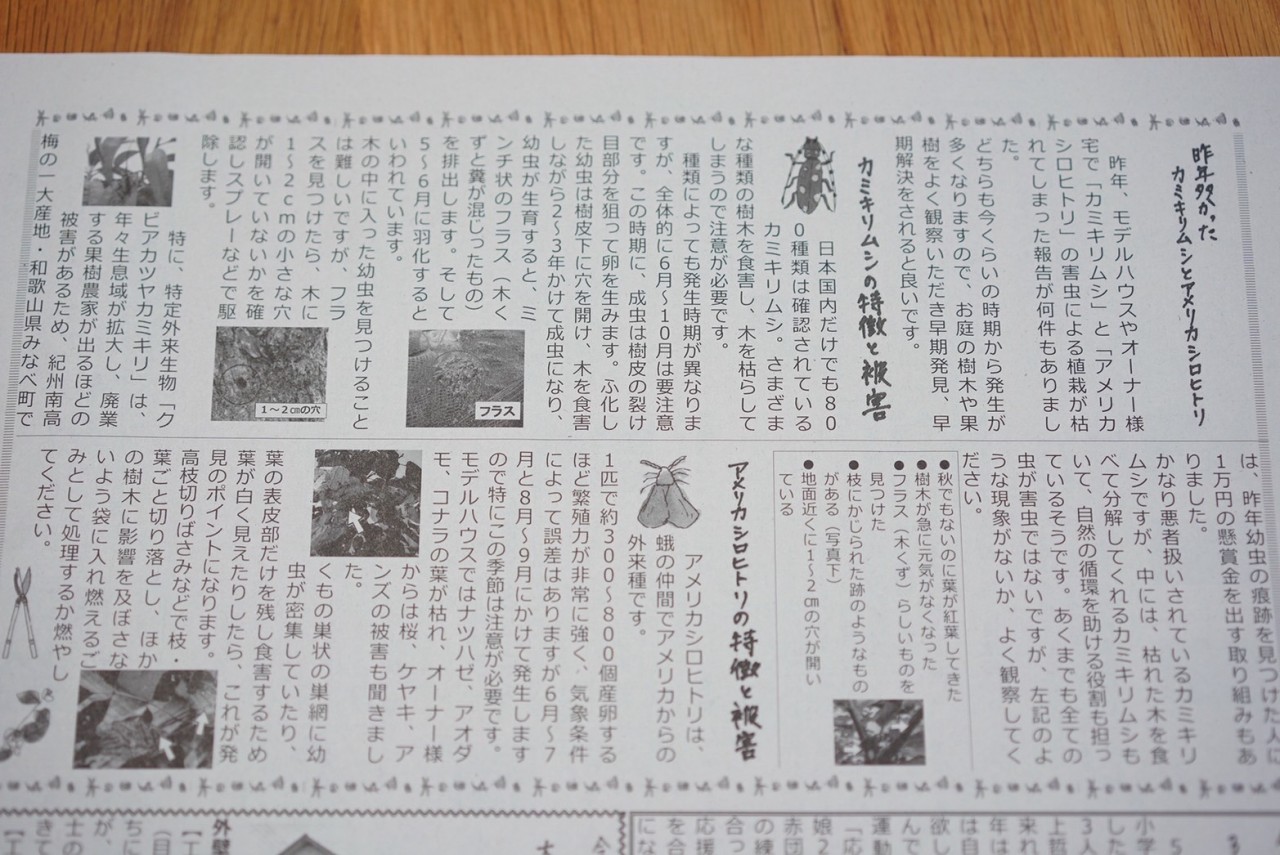 昨年多かった
カミキリムシとアメリカシロヒトリ
昨年、モデルハウスやオーナー様
宅で「カミキリムシ」と「アメリカ
シロヒトリ」の害虫による植栽が枯
れてしまった報告が何件もありまし
た。
どちらも今くらいの時期から発生が
多くなりますので、お庭の樹木や果
樹をよく観察いただき早期発見、早
期解決をされると良いです。
カミキリムシの特徴と被害
日本国内だけでも80
0種類は確認されている
カミキリムシ。さまざま
な種類の樹木を食害し、木を枯らして
しまうので注意が必要です。
種類によっても発生時期が異なりま
すが、全体的に6月～10月は要注意
です。この時期に、成虫は樹皮の裂け
目部分を狙って卵を生みます。ふ化し
た幼虫は樹皮下に穴を開け、木を食害
しながら2～3年かけて成虫になり、
幼虫が生育すると、ミ
ンチ状のフラス（木く
ずと糞が混じったもの）
を排出します。そして
5～6月に羽化すると
いわれています。
フラス
木の中に入った幼虫を見つけること
は難しいですが、フラ
スを見つけたら、木に
1～2cmの小さな穴
が開いていないかを確
認しスプレーなどで駆
除します。
1～2㎝の穴
特に、特定外来生物「ク
ビアカツヤカミキリ」は、
年々生息域が拡大し、廃業
する果樹農家が出るほどの
被害があるため、紀州南高
梅の一大産地・和歌山県みなべ町で
は、昨年幼虫の痕跡を見つけた人に
1万円の懸賞金を出す取り組みもあ
りました。
かなり悪者扱いされているカミキリ
ムシですが、中には、枯れた木を食
べて分解してくれるカミキリムシも
いて、自然の循環を助ける役割も担っ
ているそうです。あくまでも全ての
虫が害虫ではないですが、左記のよ
うな現象がないか、よく観察してく
ださい。
●秋でもないのに葉が紅葉してきた
●樹木が急に元気がなくなった
●フラス（木くず）らしいものを
見つけた
●枝にかじられた跡のようなもの
がある（写真下）
●地面近くに1～2㎝の穴が開い
ている
アメリカシロヒトリの特徴と被害
アメリカシロヒトリは、
蛾の仲間でアメリカからの
外来種です。
1匹で約300～800個産卵する
ほど繁殖力が非常に強く、気象条件
によって誤差はありますが6月～7
月と8月～9月にかけて発生します
ので特にこの季節は注意が必要です。
モデルハウスではナツハゼ、アオダ
モ、コナラの葉が枯れ、オーナー様
からは桜、ケヤキ、ア
ンズの被害も聞きまし
た。
くもの巣状の巣網に幼
虫が密集していたり、
葉の表皮部だけを残し食害するため
葉が白く見えたりしたら、これが発
見のポイントになります。
高枝切りばさみなどで枝・
葉ごと切り落とし、ほか
の樹木に影響を及ぼさな
いよう袋に入れ燃えるご
みとして処理するか燃やし
てください。